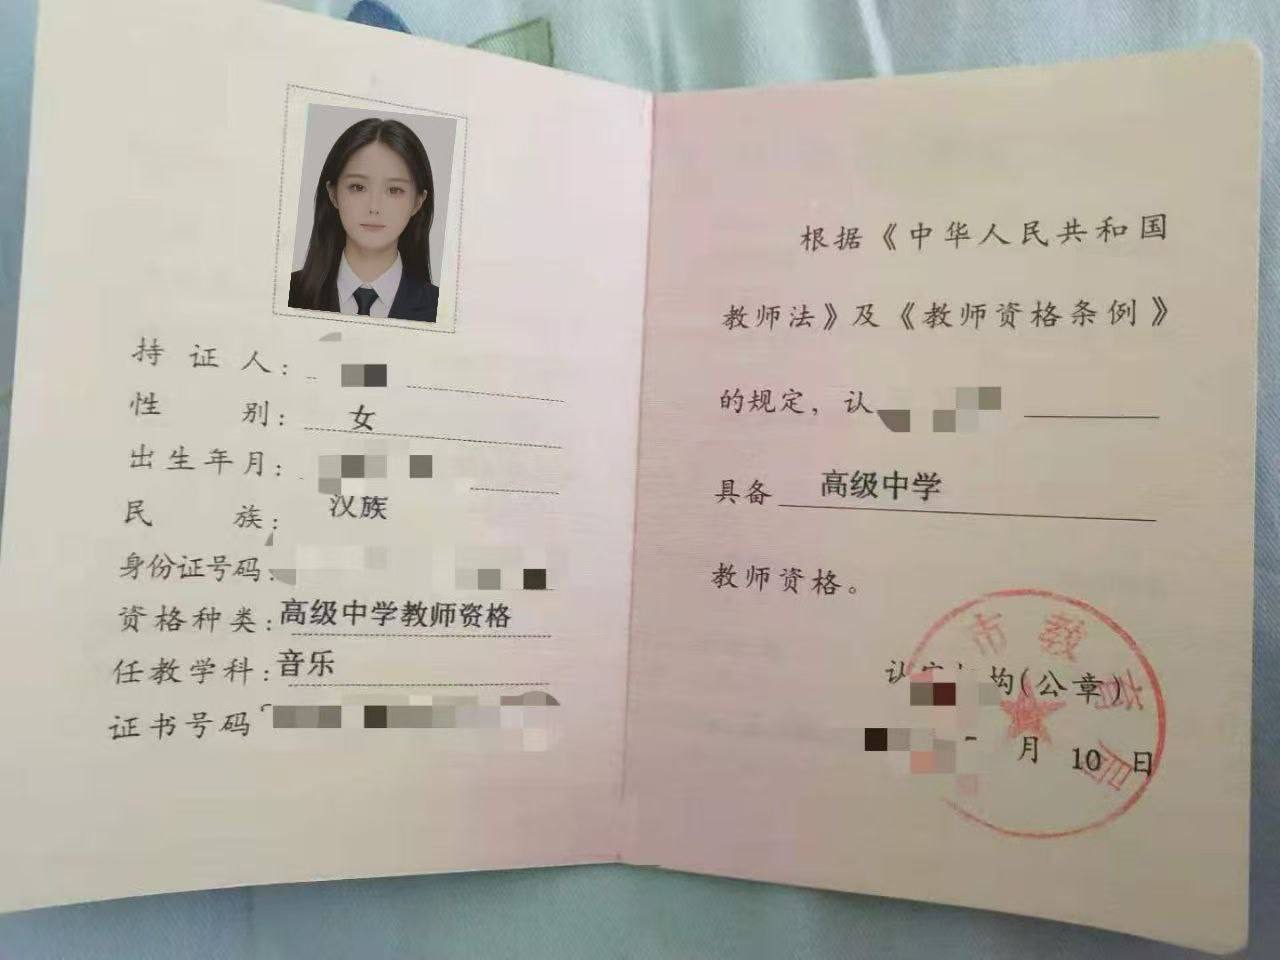 持证人：
性别：女
出生年月：
民族：汉族
身份证号码：
资格种类：高级中学教师资格
任教学科：音乐
证书号码
根据《中华人民共和国
教师法》及《教师资格条例》
的规定，认
具备 高级中学
教师资格。
(公章)
月 10 日
市教育局